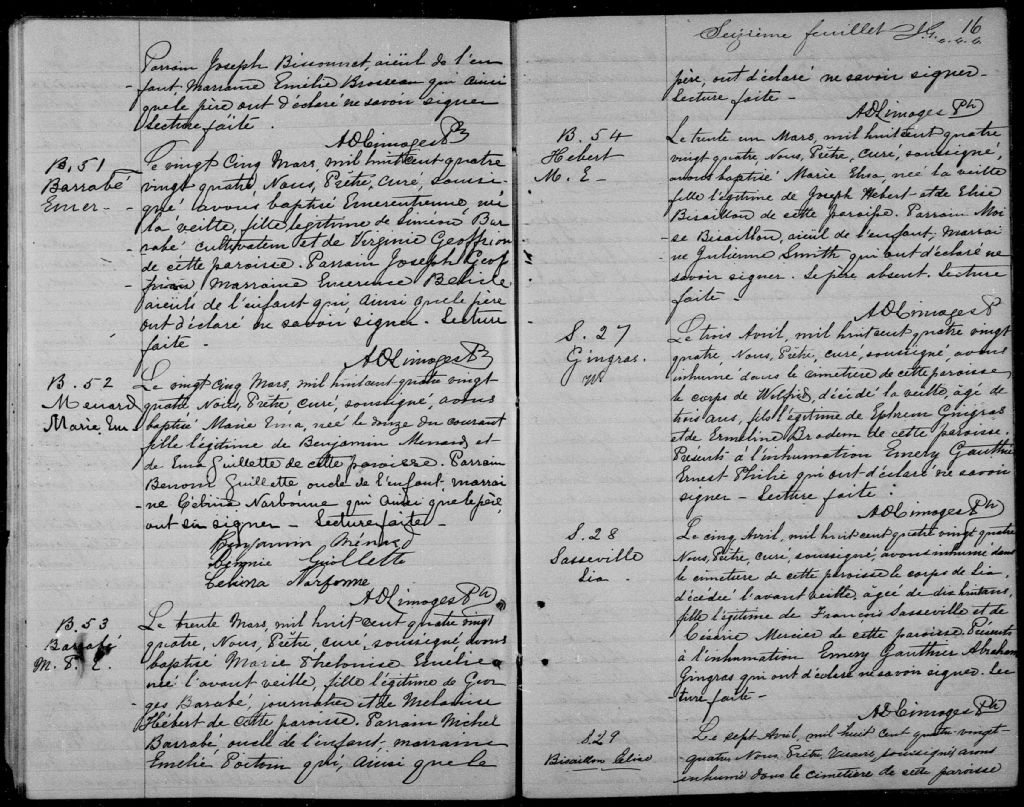 Parrain Joseph Bissonnet, aïeul de l'en
fant, Marraine Emélie Brosseau qui ainsi
que le père ont déclaré ne savoir signer
Lecture faite.
A D Limages Ptr
B. 51
Barrabé
Emer-
Le vingt Cinq Mars, mil huit cent quatre
vingt quatre, Nous, Prêtre, Curé, soussi-
gné avons baptisé Emerentienne née
la veille, fille légitime de Siméon Bar
rabé cultivateur et de Virginie Geoffrion
de cette paroisse. Parrain Joseph Geof
frion Marraine Emerence Belisle
aïeuls de l'enfant qui, ainsi que le père
ont déclaré ne savoir signer. Lecture
faite.
A D Limoges Ptr
B. 52
Menard
Marie Em
Le vingt Cinq Mars, mil huit cent quatre vingt
quatre, Nous, Prêtre, curé, soussigné, avons
baptisé Marie Ema, née le douze du courant
fille légitime de Benjamin Menard et
de Ema Guillette de cette paroisse. Parrain
Benoni Guillette oncle de l'enfant, marrai
ne Célina Narbonne qui ainsi que le père,
ont su signer - Lecture faite -
Benjamin Ménard
Bennie Guillette
Celina Narbonne
A D Limoges Ptr
B 53
Barrabé
M. T. E.
Le trente Mars, mil huit cent quatre vingt
quatre, Nous, Prêtre, curé, soussigné, avons
baptisé Marie Thelouise Emélie
née l'avant veille, fille légitime de Geor
ges Barabé, journalier et de Melanise
Hébert de cette paroisse. Parrain Michel
Barrabé, oncle de l'enfant, marraine
Emelie Poitvin qui, ainsi que le
Seizième feuillet 16
père, ont déclaré ne savoir signer -
Lecture faite -
A D Limoges Ptr
B. 54
Hebert
M. E -
Le trente un Mars, mil huit cent quatre
vingt quatre, Nous, Prêtre, Curé, soussigné,
avons baptisé Marie Elisa née la veille
fille légitime de Joseph Hebert et de Elise
Bisaillon de cette paroisse. Parrain Moi
se Bisaillon, aïeul de l'enfant, Marrai
ne Julienne Smith qui ont déclaré ne
savoir signer. Le père absent. Lecture
faite
A D Limoges P
S. 27
Gingras.
W
Le trois Avril, mil huit cent quatre vingt
quatre, Nous, Prêtre, curé, soussigné, avons
inhumé dans le cimetière de cette paroisse
le corps de Wilfrid, décédé la veille, âgé de
trois ans, fils légitime de Ephrem Gingras
et de Ermeline Brodeur de cette paroisse.
Présents à l'inhumation Emery Gauthier
Ernest Philie qui ont déclaré ne savoir
signer - Lecture faite.
A D Limoges Ptr
S. 28
Sasseville
Lia -
Le cinq Avril, mil huit cent quatre vingt quatre
Nous, Prêtre, curé, soussigné, avons inhumé dans
le cimetière de cette paroisse le corps de Lia,
décédée l'avant veille, âgée de dix huit ans,
fille légitime de François Sasseville et de
Césarie Mercier de cette paroisse. Présents
à l'inhumation Emery Gauthier Abraham
Gingras qui ont déclaré ne savoir signer. Lec
ture faite -
A D Limoges Ptr
S. 29
Bisaillon Celise
Le sept Avril, mil huit cent quatre-vingt-
quatre, Nous, Prêtre, Vicaire, soussigné, avons
inhumé dans le cimetière de cette paroisse